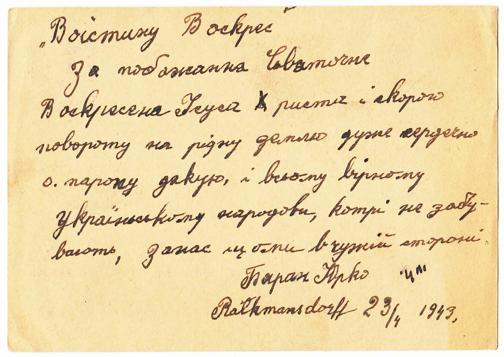 „Воістину Воскрес"
За побажання Сваточне
Воскресена Ісуса Христа і скорою
повороту на рідну землю дуже сердечно
о. пароху дякую, і всьому вірному
українському народови, котрі не забу-
вають, за нас що ми в чужій стороні.
Баран Юрко
Rathmansdorf 23/4 1943.